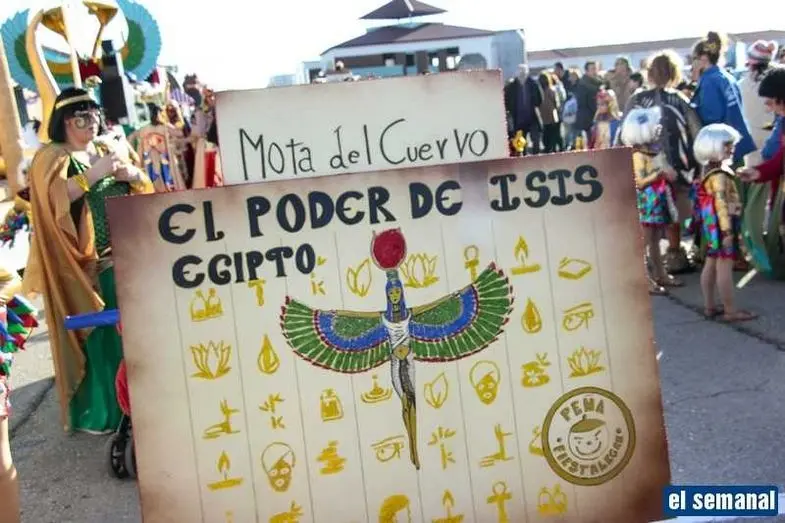 Mota del Cuervo
EL PODER DE ISIS
EGIPTO
PEÑA
FIESTALEGRE
el semanal